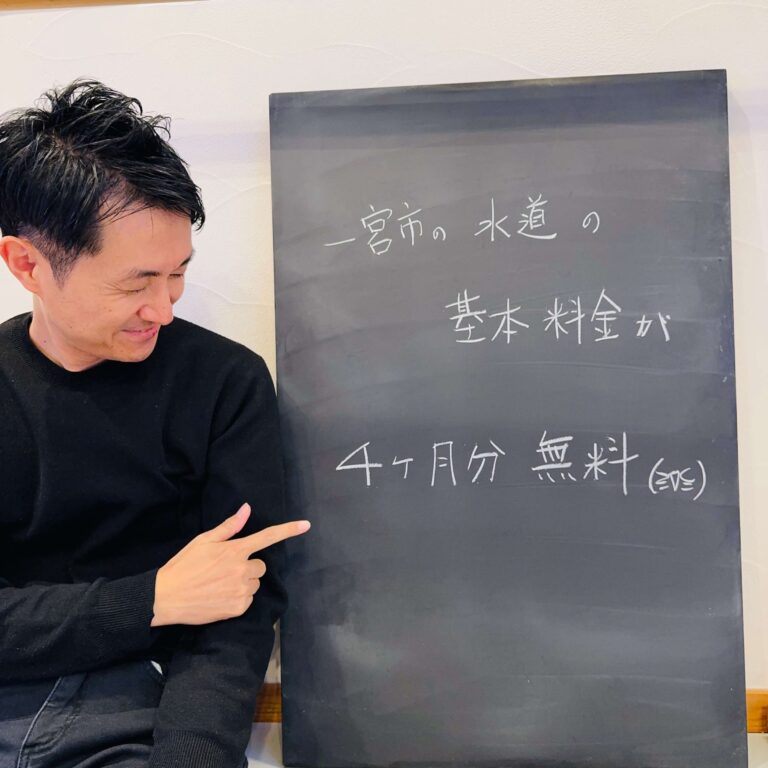 一宮市の 水道 の
基本 料金 が
4ヶ月分 無料 (≧∇≦)